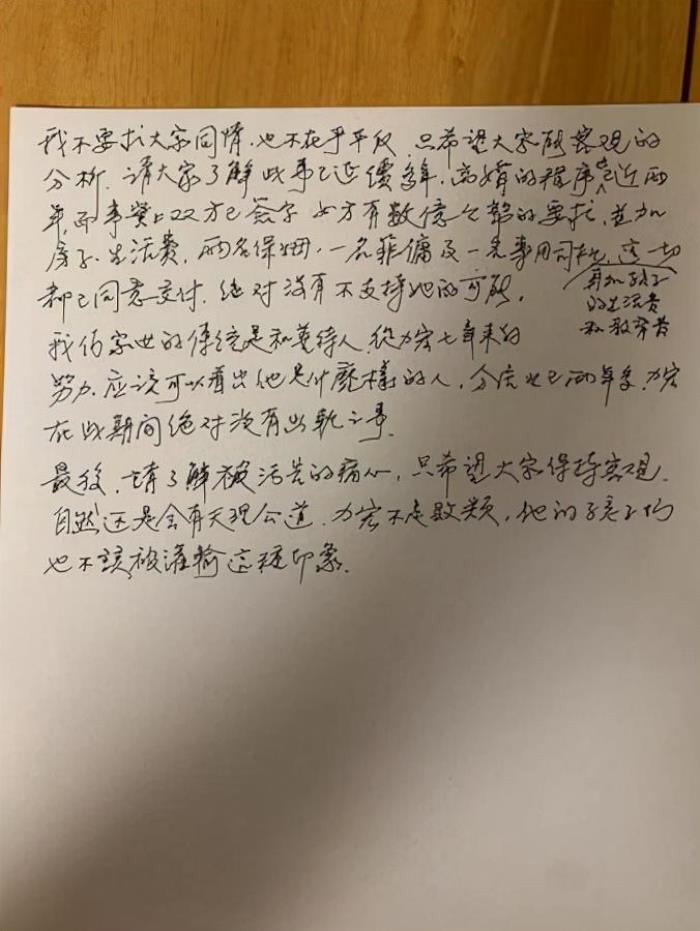 我不要求大家同情，也不在乎平反，只希望大家能客观的
分析，请大家了解此事已延續多年，离婚的程序已近两
年，而事实上双方已签字 女方有数億台幣的要求，並加
房子、生活費，两名保姆，一名菲傭及一名專用司机，这一切
再加孩子
的生活费
和教育費
都已同意交付，绝对没有不支持她的可能。
我们家世的传统是和善待人，從力宏七年来的
努力，应该可以看出他是什麼樣的人，分居也已两年多，力宏
在此期间绝对没有出軌之事，
最後，請了解被污告的痛心，只希望大家保持客观，
自然还是会有天理公道，力宏不是敗類，他的孩子们
也不該被灌輸这种印象。